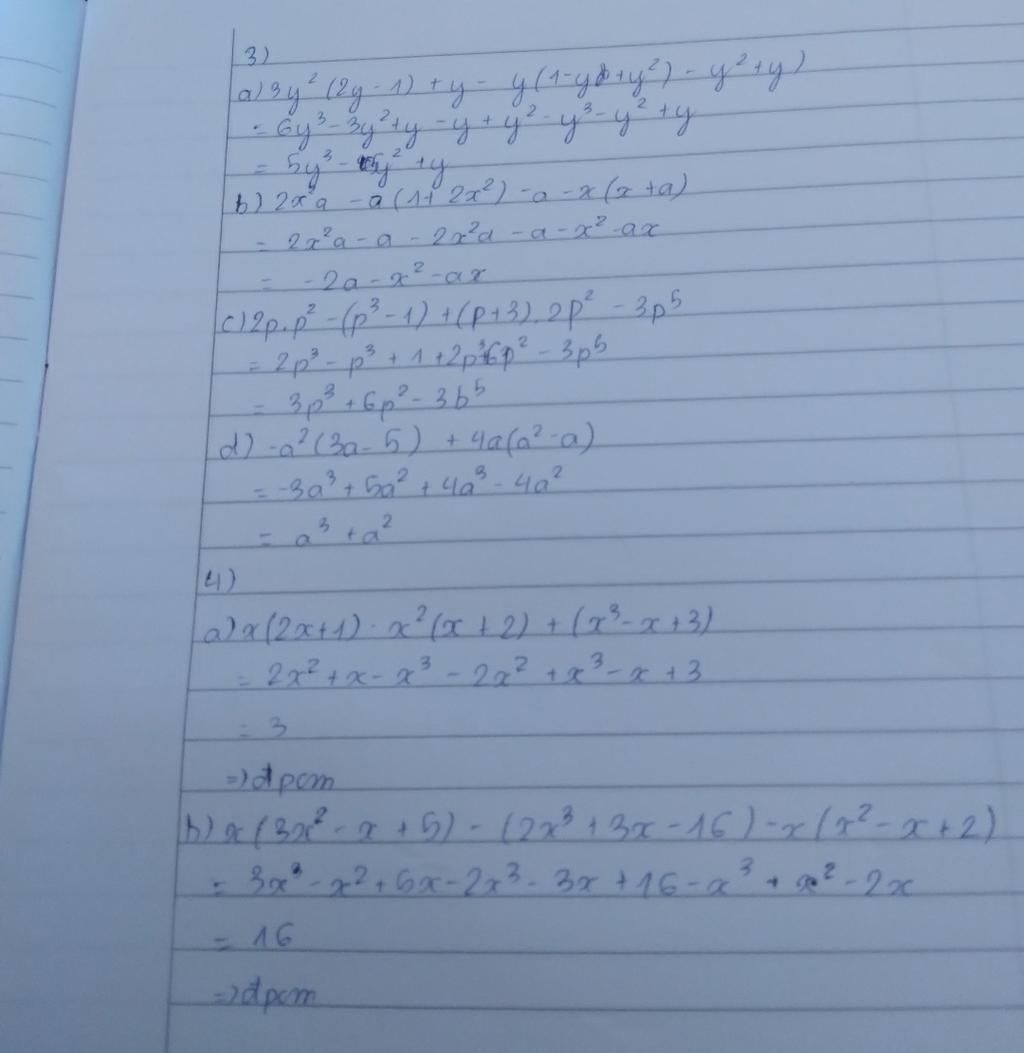 3)
a) 3y² (2y - 1) + y - y(1 - y + y²) - y² + y)
= 6y³ - 3y² + y - y + y² - y³ - y² + y
= 5y³ - y² + y
b) 2x²a - a(1 + 2x²) - a - x(x + a)
= 2x²a - a - 2x²a - a - x² - ax
= - 2a - x² - ax
c) 2p.p² - (p³ - 1) + (p + 3). 2p² - 3p⁵
= 2p³ - p³ + 1 + 2p³ 6p² - 3p⁵
= 3p³ + 6p² - 3b⁵
d) -a² (3a - 5) + 4a(a² - a)
= -3a³ + 5a² + 4a³ - 4a²
= a³ + a²
4)
a) x(2x + 1) - x² (x + 2) + (x³ - x + 3)
= 2x² + x - x³ - 2x² + x³ - x + 3
= 3
=> đpcm
b) x(3x² - x + 5) - (2x³ + 3x - 16) - x(x² - x + 2)
= 3x³ - x² + 5x - 2x³ - 3x + 16 - x³ + x² - 2x
= 16
=> đpcm